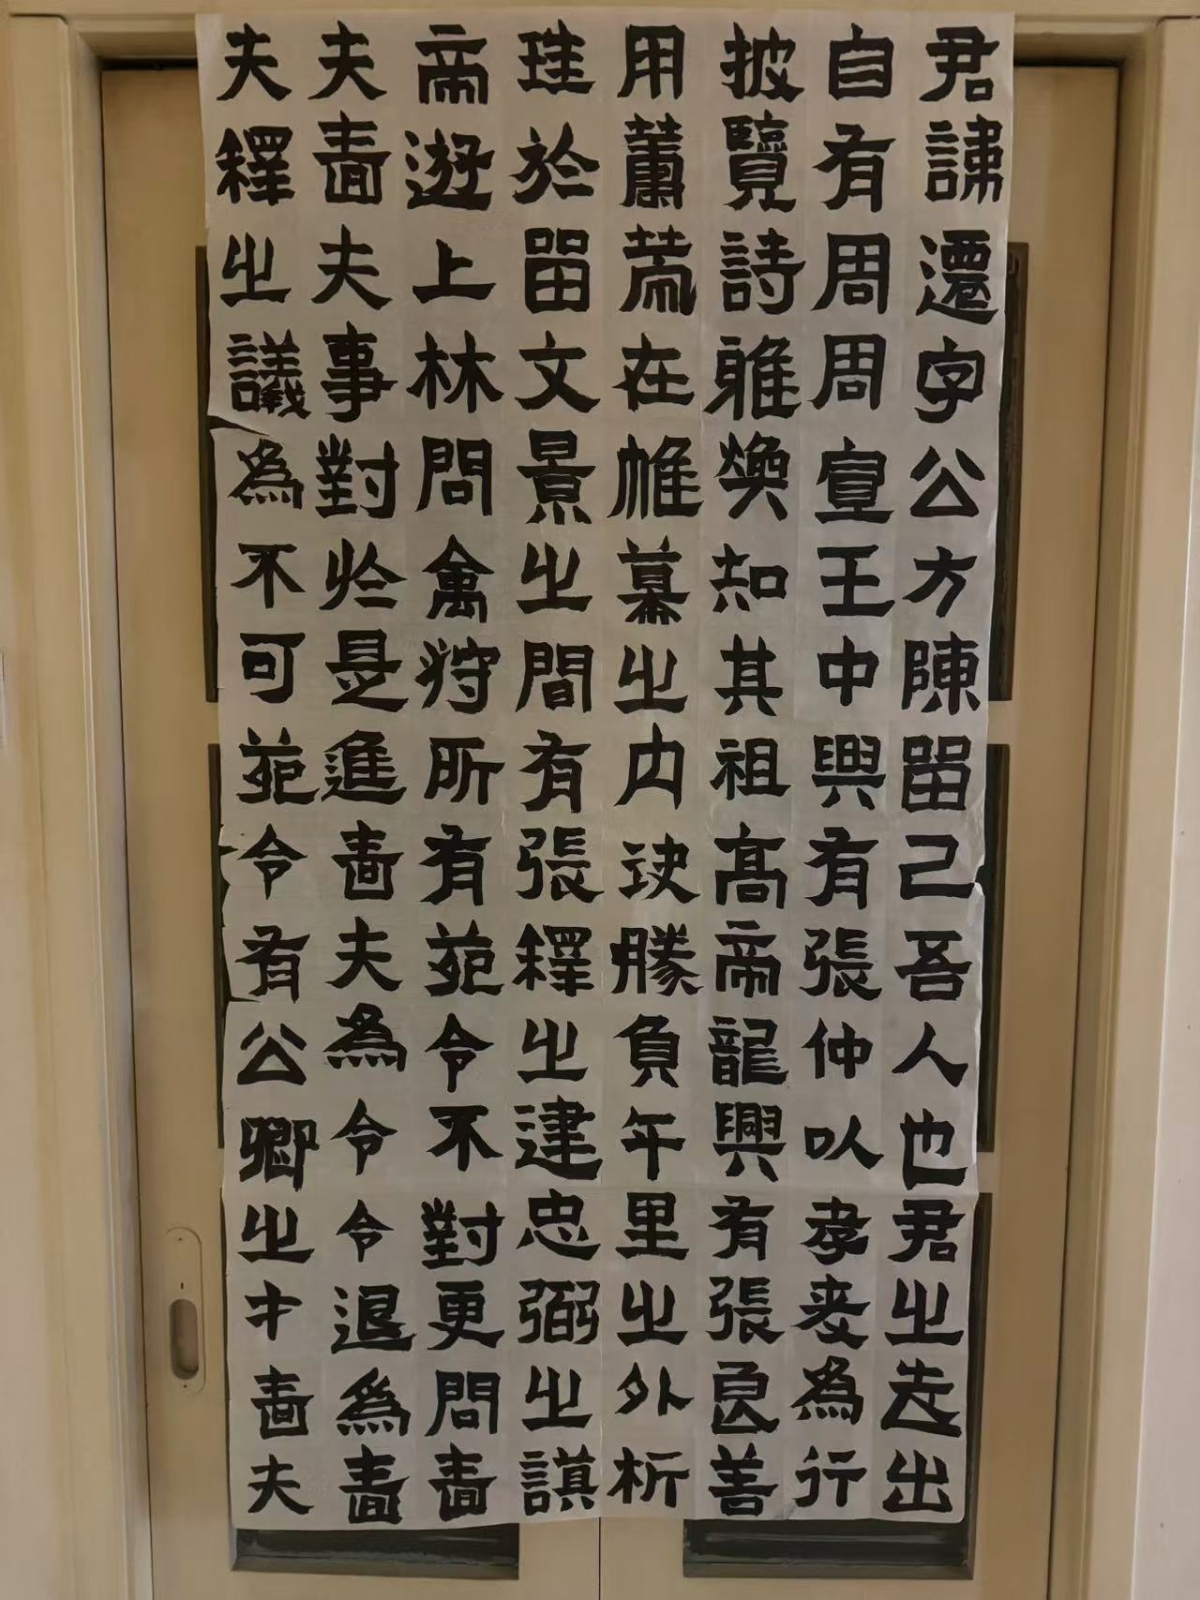 君諱遷字公方陳留己吾人也君之先出
自有周周宣王中興有張仲以孝友為行
披覽詩雅煥知其祖高帝龍興有張良善
用籌策在帷幕之内決勝負千里之外析
珪於留文景之間有張釋之建忠弼之謨
帝遊上林問禽狩所有苑令不對更問嗇
夫嗇夫事對於是進嗇夫為令令退為嗇
夫釋之議為不可苑令有公卿之才嗇夫